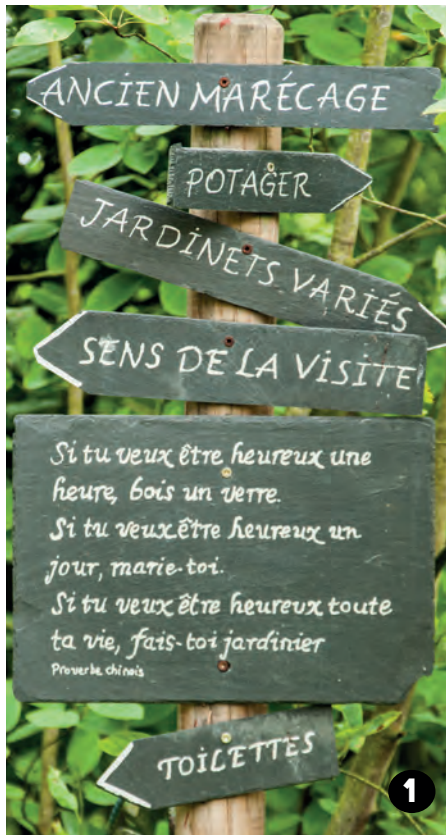 ANCIEN MARÉCAGE
POTAGER
JARDINETS VARIÉS
SENS DE LA VISITE
Si tu veux être heureux une
heure, bois un verre.
Si tu veux être heureux un
jour, marie-toi.
Si tu veux être heureux toute
ta vie, fais-toi jardinier
Proverbe chinois
TOILETTES
1